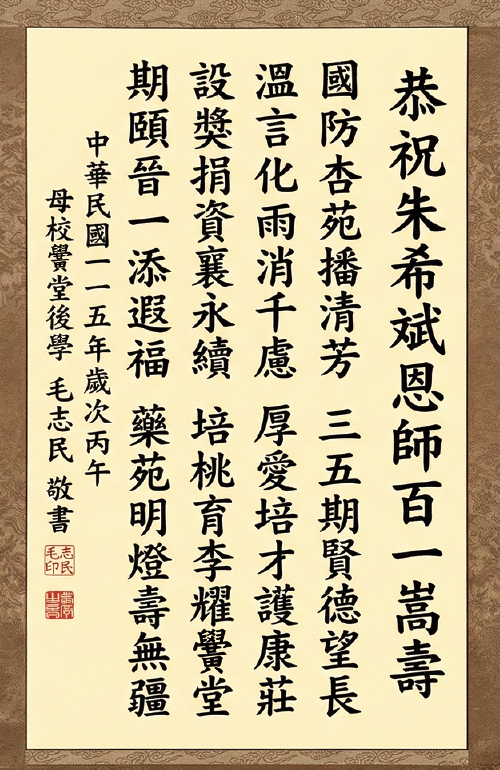 恭祝朱希斌恩師百一嵩壽
國防杏苑播清芳 三五期賢德望長
溫言化雨消千慮 厚愛培才護康莊
設獎捐資襄永續 培桃育李耀黌堂
期頤晉一添遐福 藥苑明燈壽無疆
中華民國一一五年歲次丙午
母校黌堂後學 毛志民 敬書
志民毛印